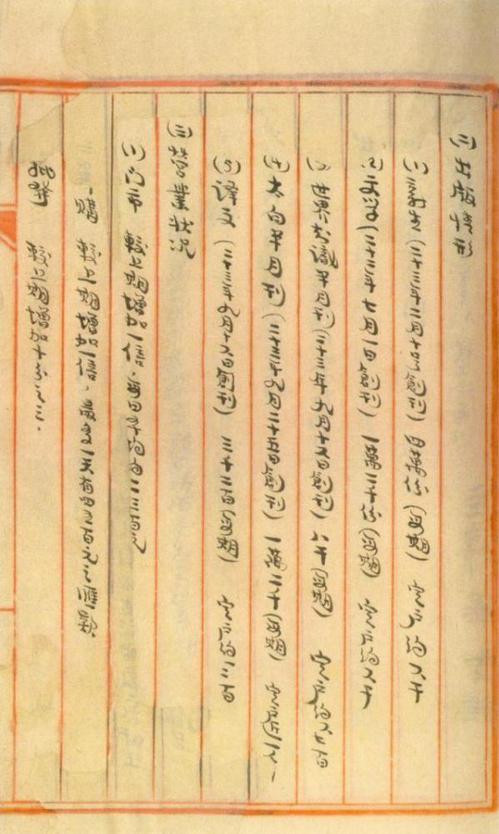 (二)出版情形
(1)新生(二十三年二月十日創刊)四萬份(每期) 定户約八千
(2)文学(二十二年七月一日創刊)一萬二千份(每期) 定户約八千
(3)世界知識半月刊(二十三年九月十六日創刊)八千(每期) 定户約 百
(4)太白半月刊(二十三年九月二十日創刊)一萬二千(每期) 定户
(5)译文(二十三年九月十六日創刊)三千二百(每期) 定户約一二百
(三)營業狀况
(1)门市 較上期增加一倍,每日平均有二三百元
購 較上期增加一倍,最多一天有四五百元之匯款
批發 較上期增加十分之三.